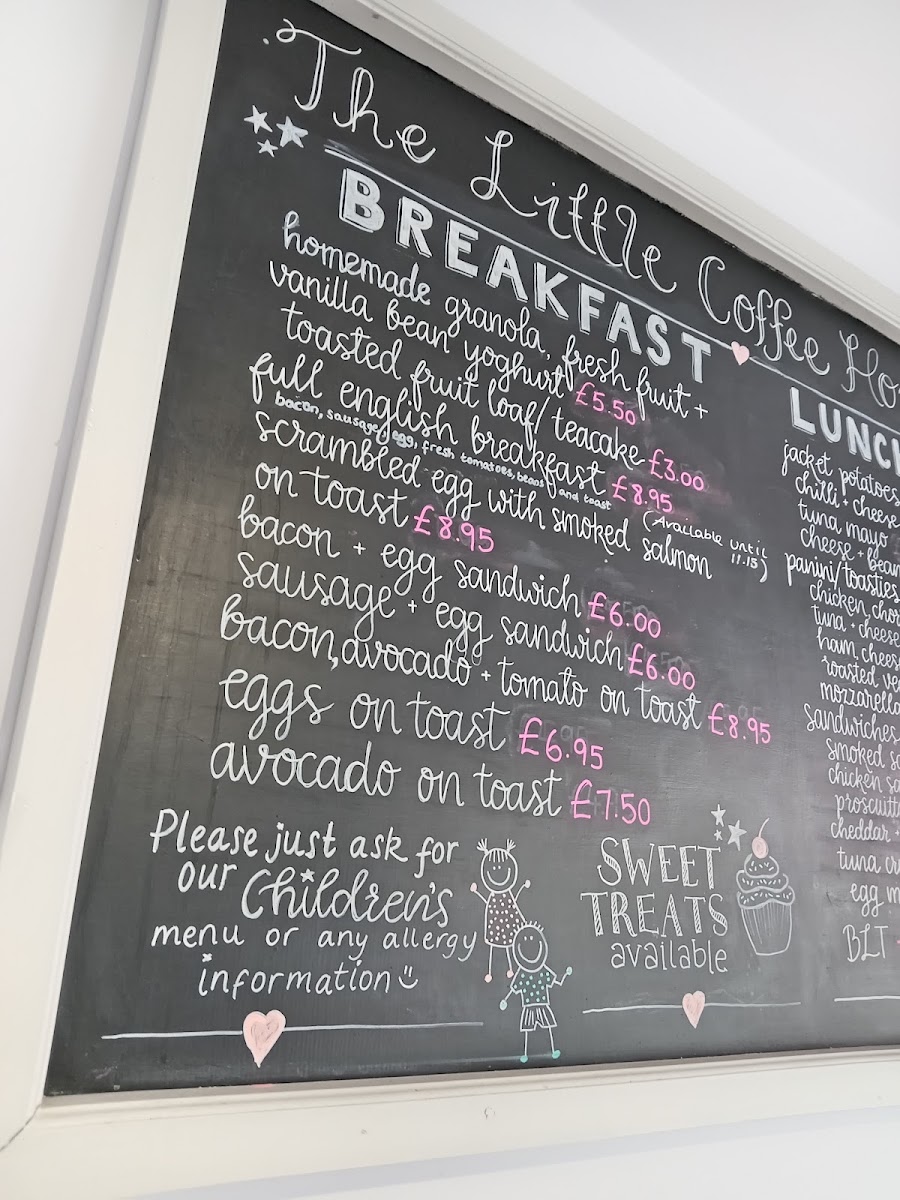 The Little Coffee
BREAKFAST
homemade granola, fresh fruit +
vanilla bean yoghurt £5.50
toasted fruit loaf/teacake £3.00
full english breakfast £8.95
bacon, sausage, egg, fresh tomatoes, beans and toast
(Available until
11.15)
scrambled egg with smoked salmon
on toast £8.95
bacon + egg sandwich £6.00
sausage + egg sandwich £6.00
bacon, avocado + tomato on toast £8.95
eggs on toast £6.95
avocado on toast £7.50
Please just ask for
our Children's
menu or any allergy
information
SWEET
TREATS
available
LUNCH
jacket potatoes
chilli + cheese
tuna mayo
cheese + bean
panini/toasties
chicken, chor
tuna + cheese
ham, chees
roasted ve
mozzarella
sandwiches
smoked sa
chicken sa
prosciutto
cheddar +
tuna cru
egg m
BLT